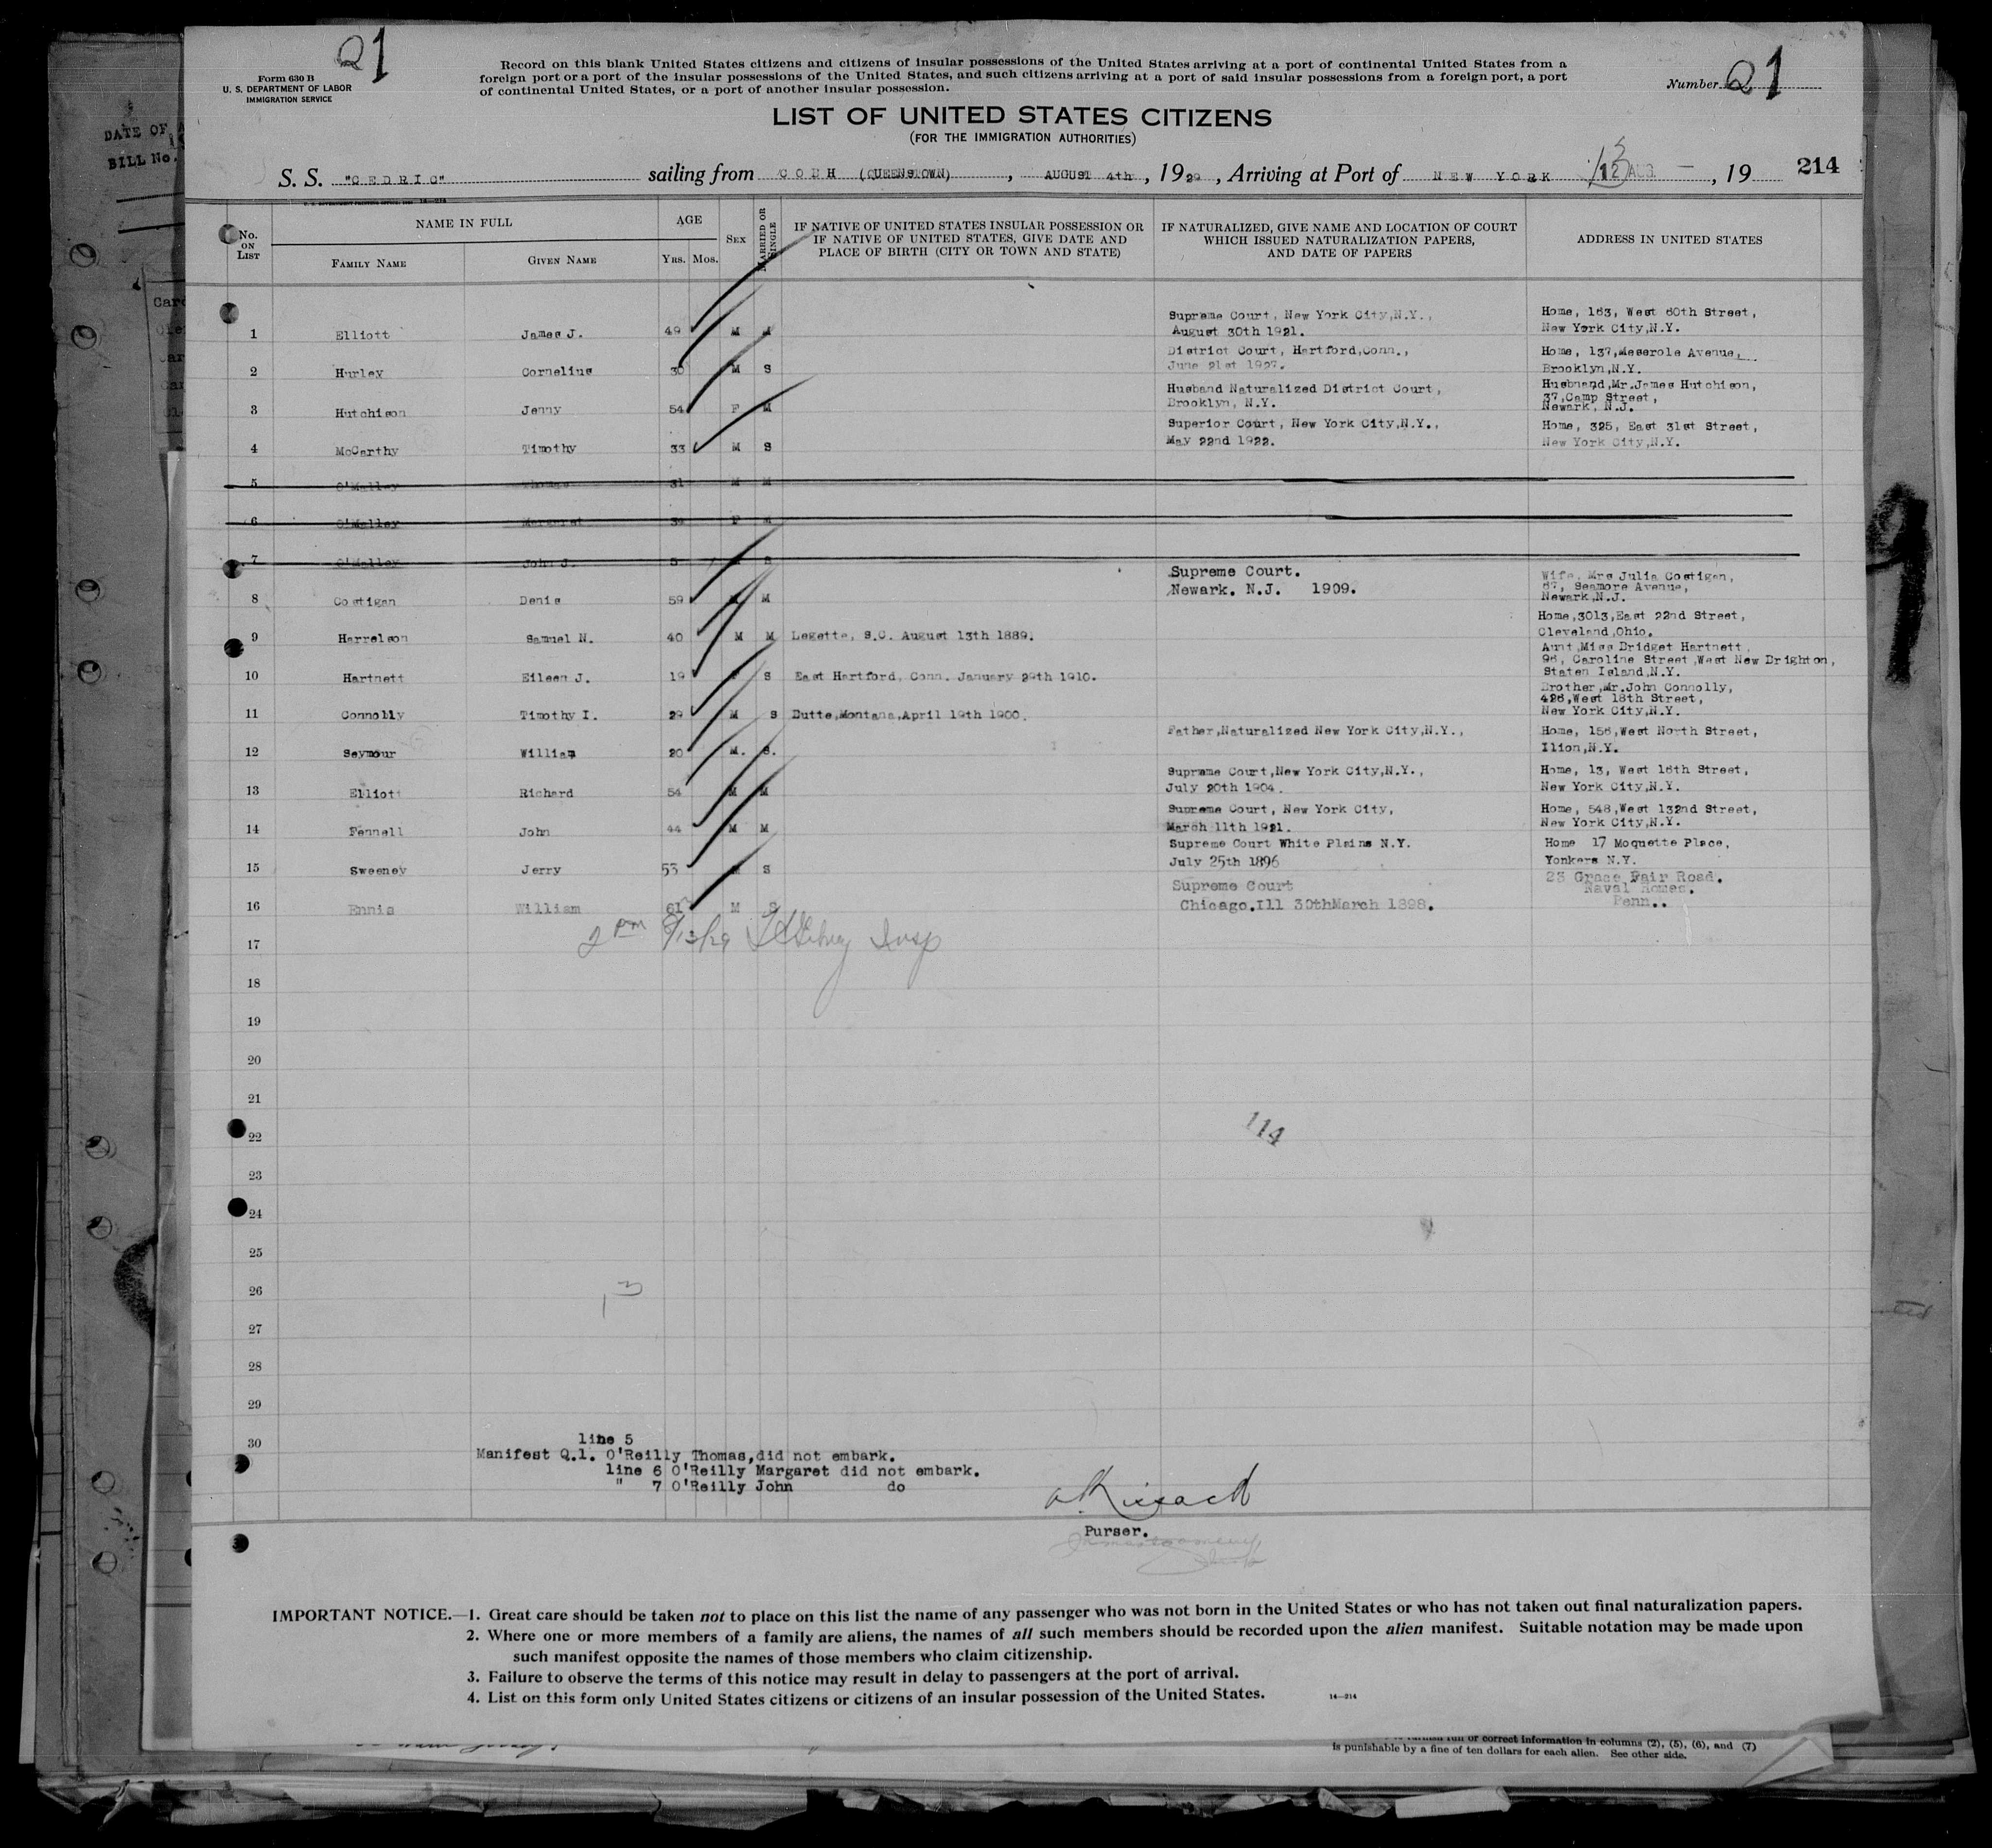 Q1
Form 630 B
U. S. DEPARTMENT OF LABOR
IMMIGRATION SERVICE
Record on this blank United States citizens and citizens of insular possessions of the United States arriving at a port of continental United States from a
foreign port or a port of the insular possessions of the United States, and such citizens arriving at a port of said insular possessions from a foreign port, a port
of continental United States, or a port of another insular possession.
Number Q1
LIST OF UNITED STATES CITIZENS
(FOR THE IMMIGRATION AUTHORITIES)
S. S. "CEDRIC" sailing from COBH (QUEENSTOWN), AUGUST 4th, 1929, Arriving at Port of NEW YORK 13 AUG , 19 214
No. ON LIST
NAME IN FULL
FAMILY NAME
GIVEN NAME
AGE
YRS. MOS.
SEX
MARRIED OR SINGLE
IF NATIVE OF UNITED STATES INSULAR POSSESSION OR
IF NATIVE OF UNITED STATES, GIVE DATE AND
PLACE OF BIRTH (CITY OR TOWN AND STATE)
IF NATURALIZED, GIVE NAME AND LOCATION OF COURT
WHICH ISSUED NATURALIZATION PAPERS,
AND DATE OF PAPERS
ADDRESS IN UNITED STATES
1 Elliott James J. 49 M M
Supreme Court, New York City,N.Y.,
August 30th 1921.
Home, 163, West 60th Street,
New York City,N.Y.
2 Hurley Cornelius 30 M S
District Court, Hartford,Conn.,
June 21st 1927.
Home, 137,Meserole Avenue,
Brooklyn,N.Y.
3 Hutchison Jenny 54 F M
Husband Naturalized District Court,
Brooklyn, N.Y.
Husbnand,Mr.James Hutchison,
37,Camp Street,
Newark, N.J.
4 McCarthy Timothy 33 M S
Superior Court, New York City,N.Y.,
May 22nd 1922.
Home, 325, East 31st Street,
New York City,N.Y.
5 O'Malley Thomas 31 M M
6 O'Malley Margaret 34 F M
7 O'Malley John J. 5 S
8 Costigan Denis 59 M
Supreme Court.
Newark. N.J. 1909.
Wife, Mrs Julia Costigan,
67, Seamore Avenue,
Newark,N.J.
9 Harrelson Samuel N. 40 M M Legette, S.C. August 13th 1889.
Home,3013,East 22nd Street,
Cleveland,Ohio.
10 Hartnett Eileen J. 19 S East Hartford, Conn. January 29th 1910.
Aunt,Miss Bridget Hartnett,
96, Caroline Street,West New Brighton,
Staten Island,N.Y.
11 Connolly Timothy I. 29 M S Butte,Montana,April 19th 1900.
Brother,Mr.John Connolly,
426,West 18th Street,
New York City,N.Y.
12 Seymour William 20 M. S.
Father,Naturalized New York City,N.Y.,
Home, 156,West North Street,
Ilion,N.Y.
13 Elliott Richard 54 M M
Supreme Court,New York City,N.Y.,
July 20th 1904.
Home, 13, West 16th Street,
New York City,N.Y.
14 Fennell John 44 M M
Supreme Court, New York City,
March 11th 1921.
Home, 548,West 132nd Street,
New York City,N.Y.
15 Sweeney Jerry 53 M S
Supreme Court White Plains N.Y.
July 25th 1896
Home 17 Moquette Place,
Yonkers N.Y.
16 Ennis William 61 M S
Supreme Court
Chicago.Ill 30thMarch 1898.
23 Grace Fair Road.
Naval Homes.
Penn..
17
2 pm 8/13/29 Insp
18
19
20
21
22
114
23
24
25
26
27
28
29
30
line 5
Manifest Q.1. O'Reilly Thomas,did not embark.
line 6 O'Reilly Margaret did not embark.
" 7 O'Reilly John do
Purser.
IMPORTANT NOTICE.—1. Great care should be taken not to place on this list the name of any passenger who was not born in the United States or who has not taken out final naturalization papers.
2. Where one or more members of a family are aliens, the names of all such members should be recorded upon the alien manifest. Suitable notation may be made upon
such manifest opposite the names of those members who claim citizenship.
3. Failure to observe the terms of this notice may result in delay to passengers at the port of arrival.
4. List on this form only United States citizens or citizens of an insular possession of the United States.
14—214
or correct information in columns (2), (5), (6), and (7)
is punishable by a fine of ten dollars for each alien. See other side.
DATE OF
BILL No.